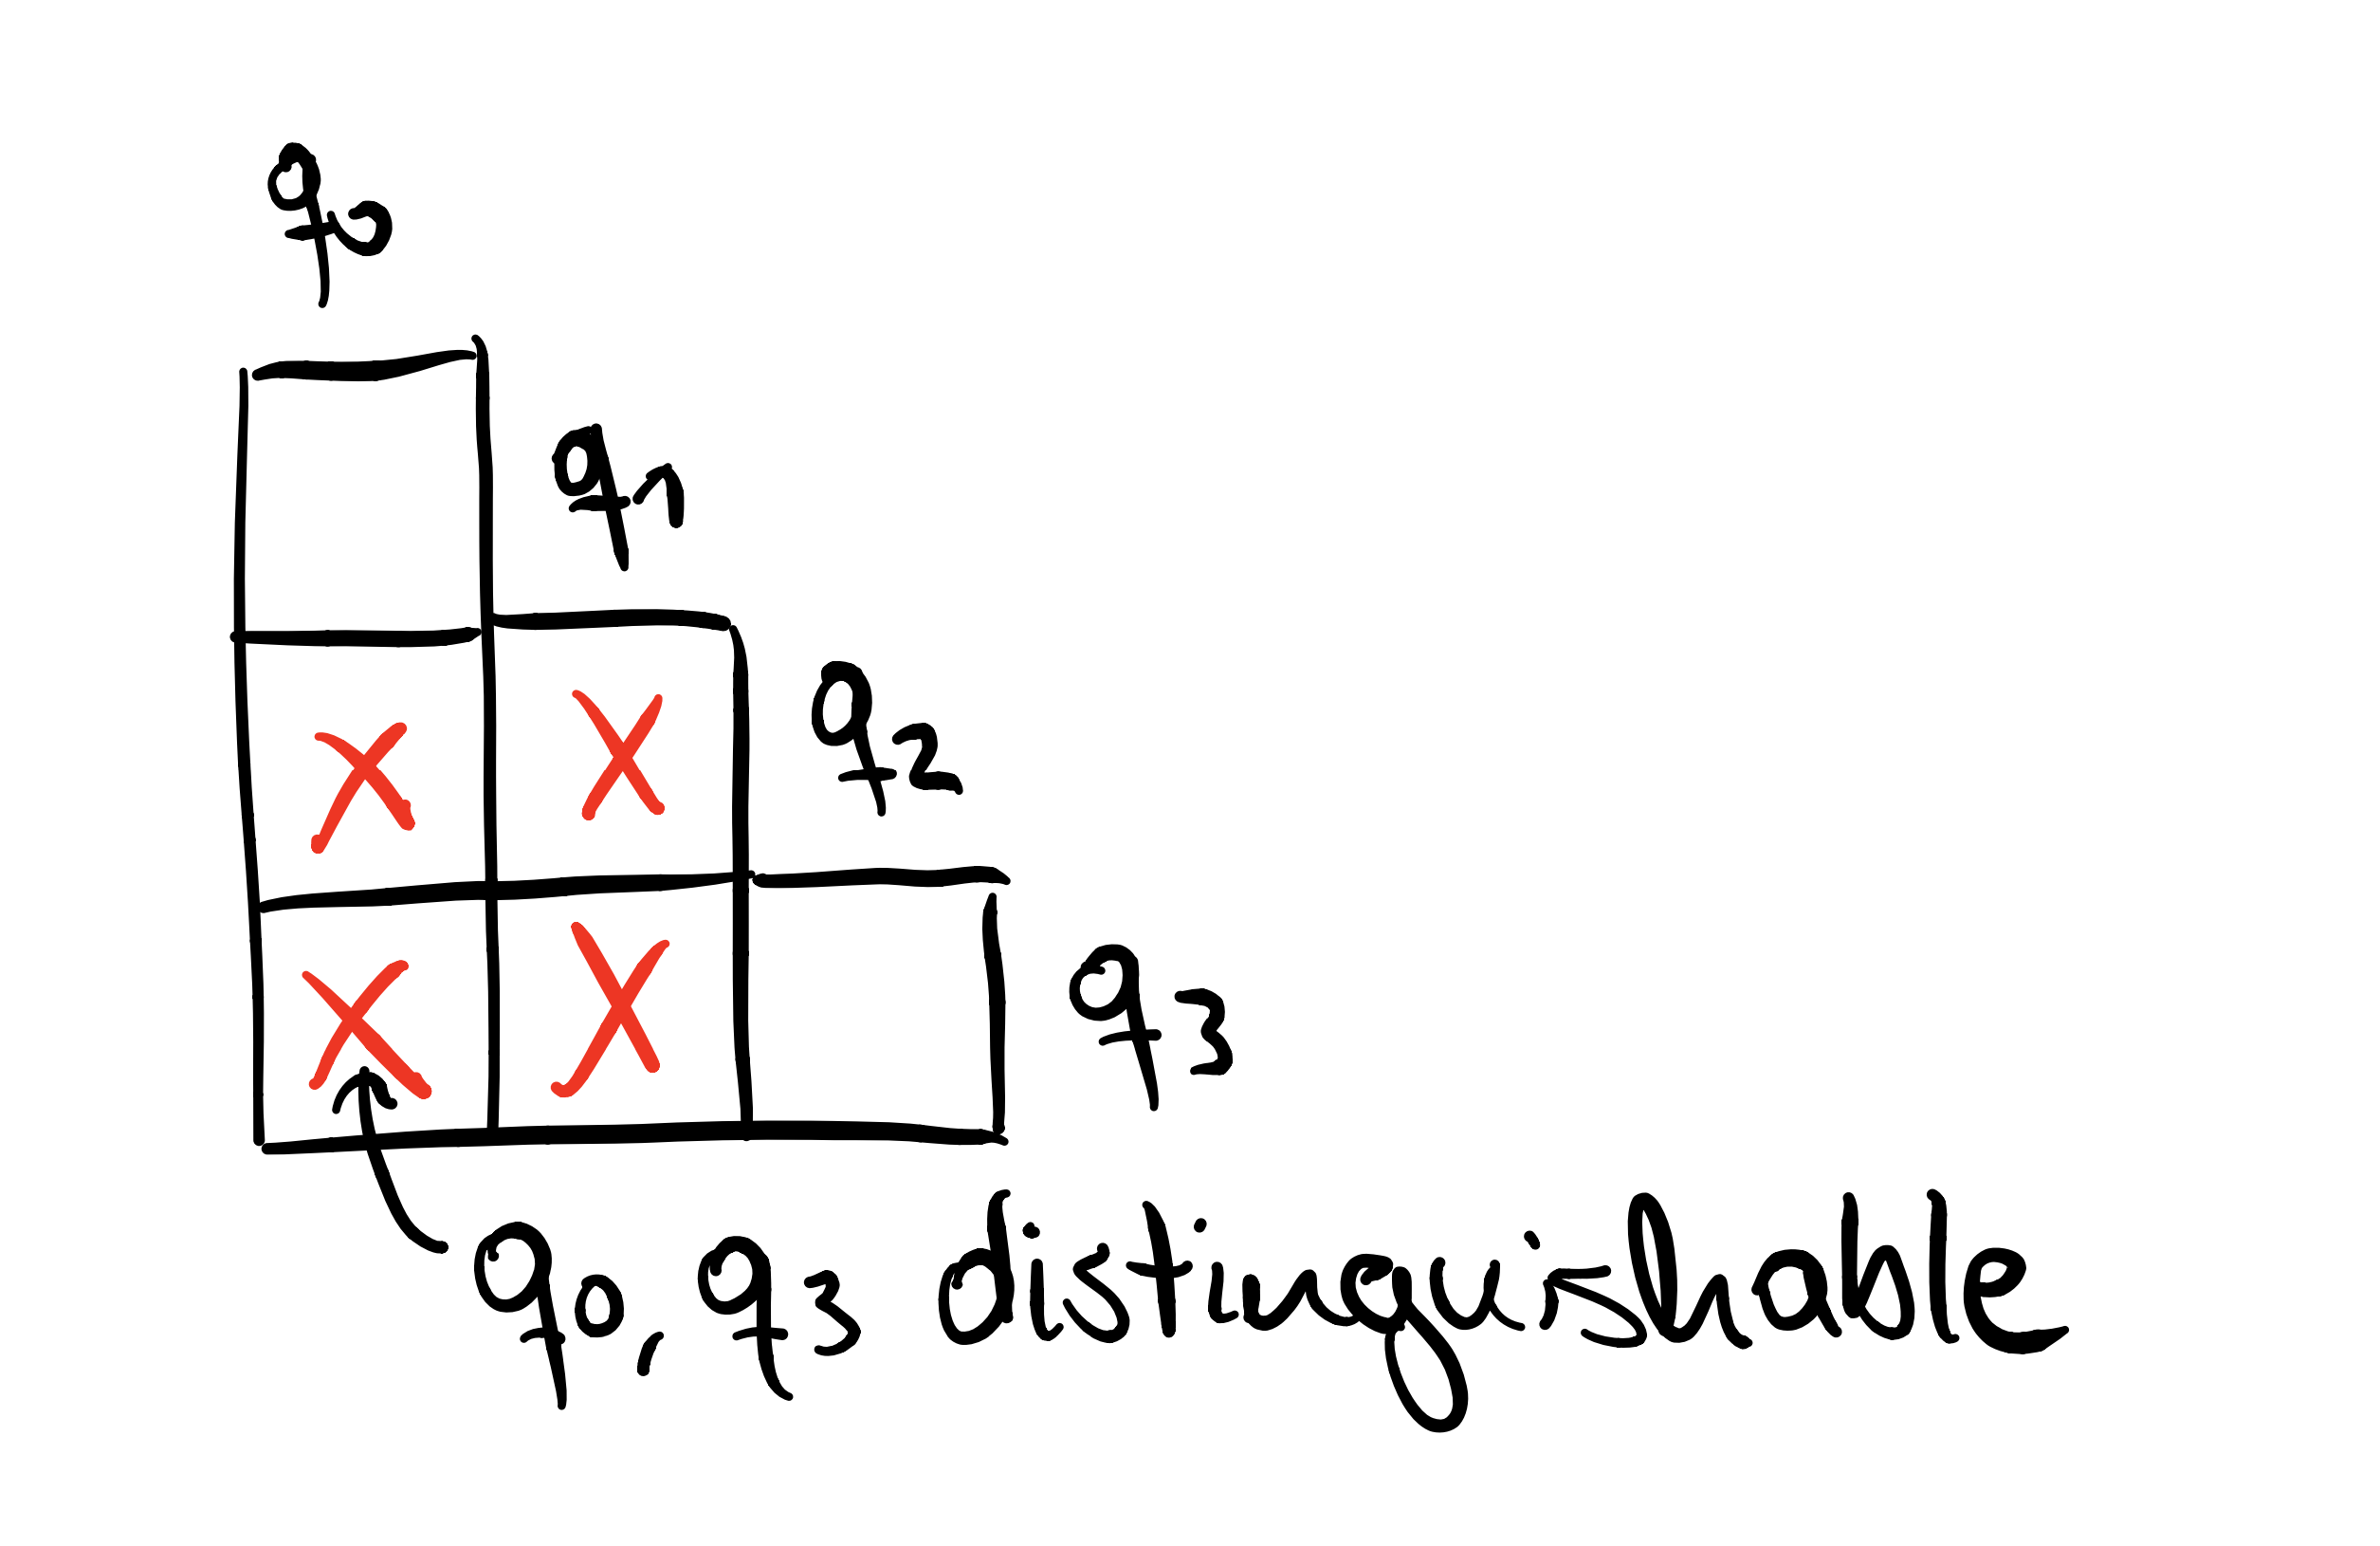 q0
q1
q2
q3
q0, q3 distinguishable